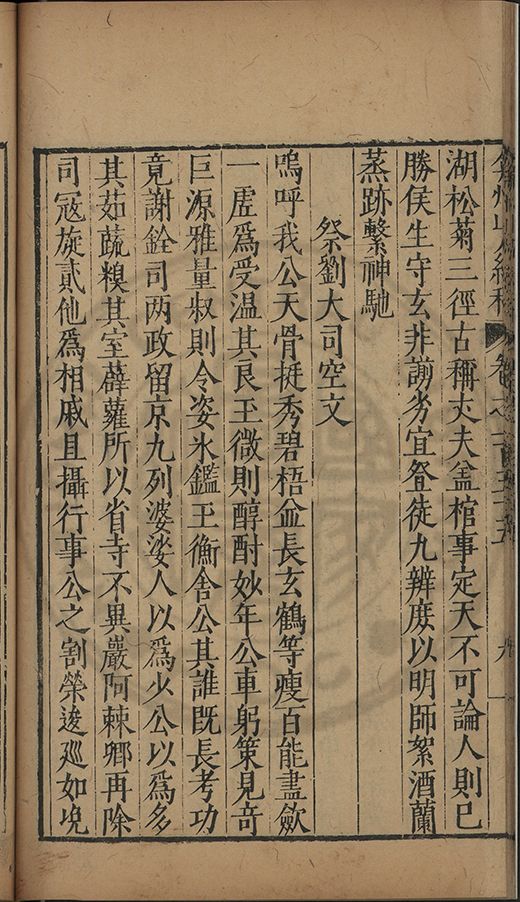 弇州山人續稿 卷之一百五十五 九
湖松菊三徑古稱丈夫盖棺事定天不可論人則已
勝侯生守玄非謝夯宜登徒九辨庶以明師絮酒蘭
蒸跡繫神馳
祭劉大司空文
嗚呼我公天骨挺秀碧梧並長玄鶴等瘦百能盡歛
一虗為受温其良玉微則醇酎妙年公車躬策見竒
巨源雅量叔則令姿氷鑑玉衡舍公其誰既長考功
竟謝銓司两政留京九列婆娑人以為少公以為多
其茹蔬糗其室薜蘿所以省寺不異巖阿棘卿再除
司冦旋貳他為相戚且攝行事公之割榮逡廵如浼